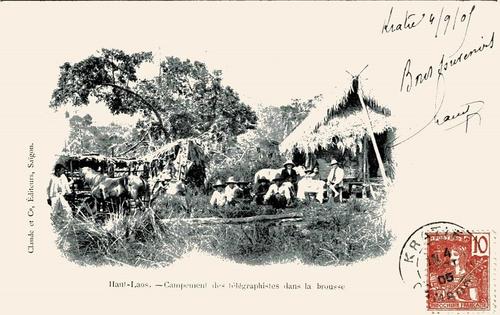 Kratié 4/9/05
Bons souvenirs
Claude et Cie, Éditeurs, Saïgon.
Haut-Laos. — Campement des télégraphistes dans la brousse
KRATIÉ
05
10